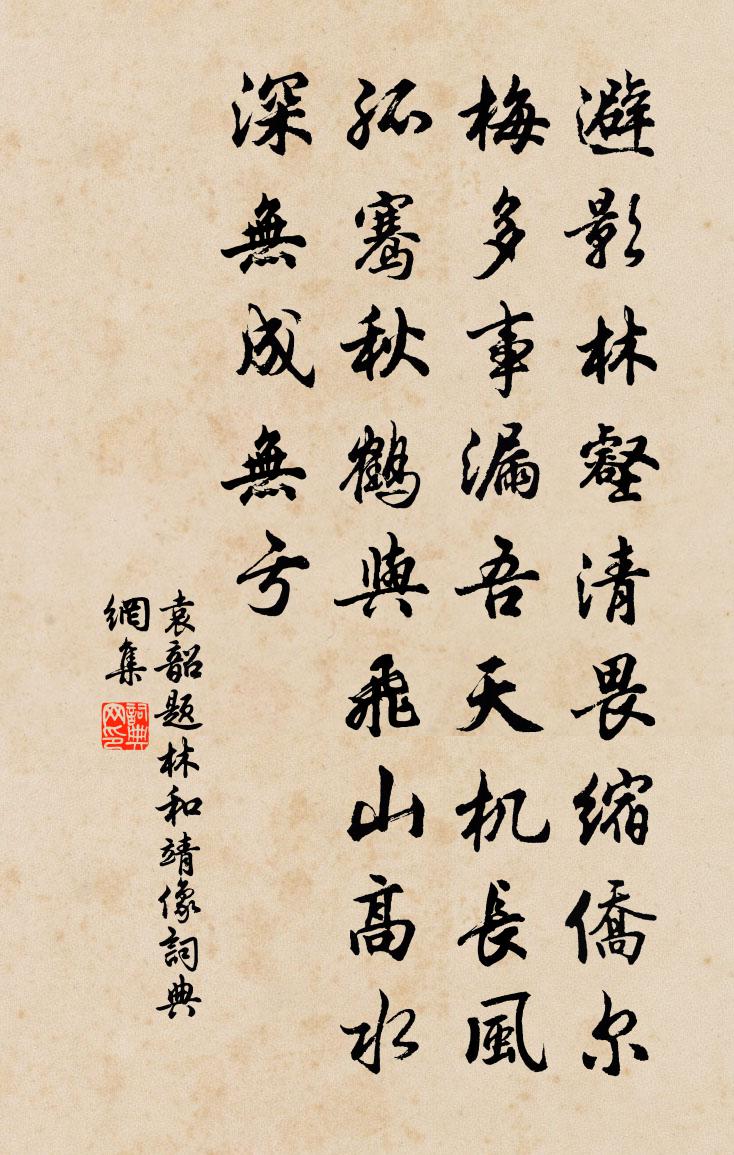 避影林壑清畏縮僑尔
梅多事漏吾天机長風
孤騫秋鶴與飛山高水
深無成無亏
袁韶题林和靖像詞典
網集
詞典
网印